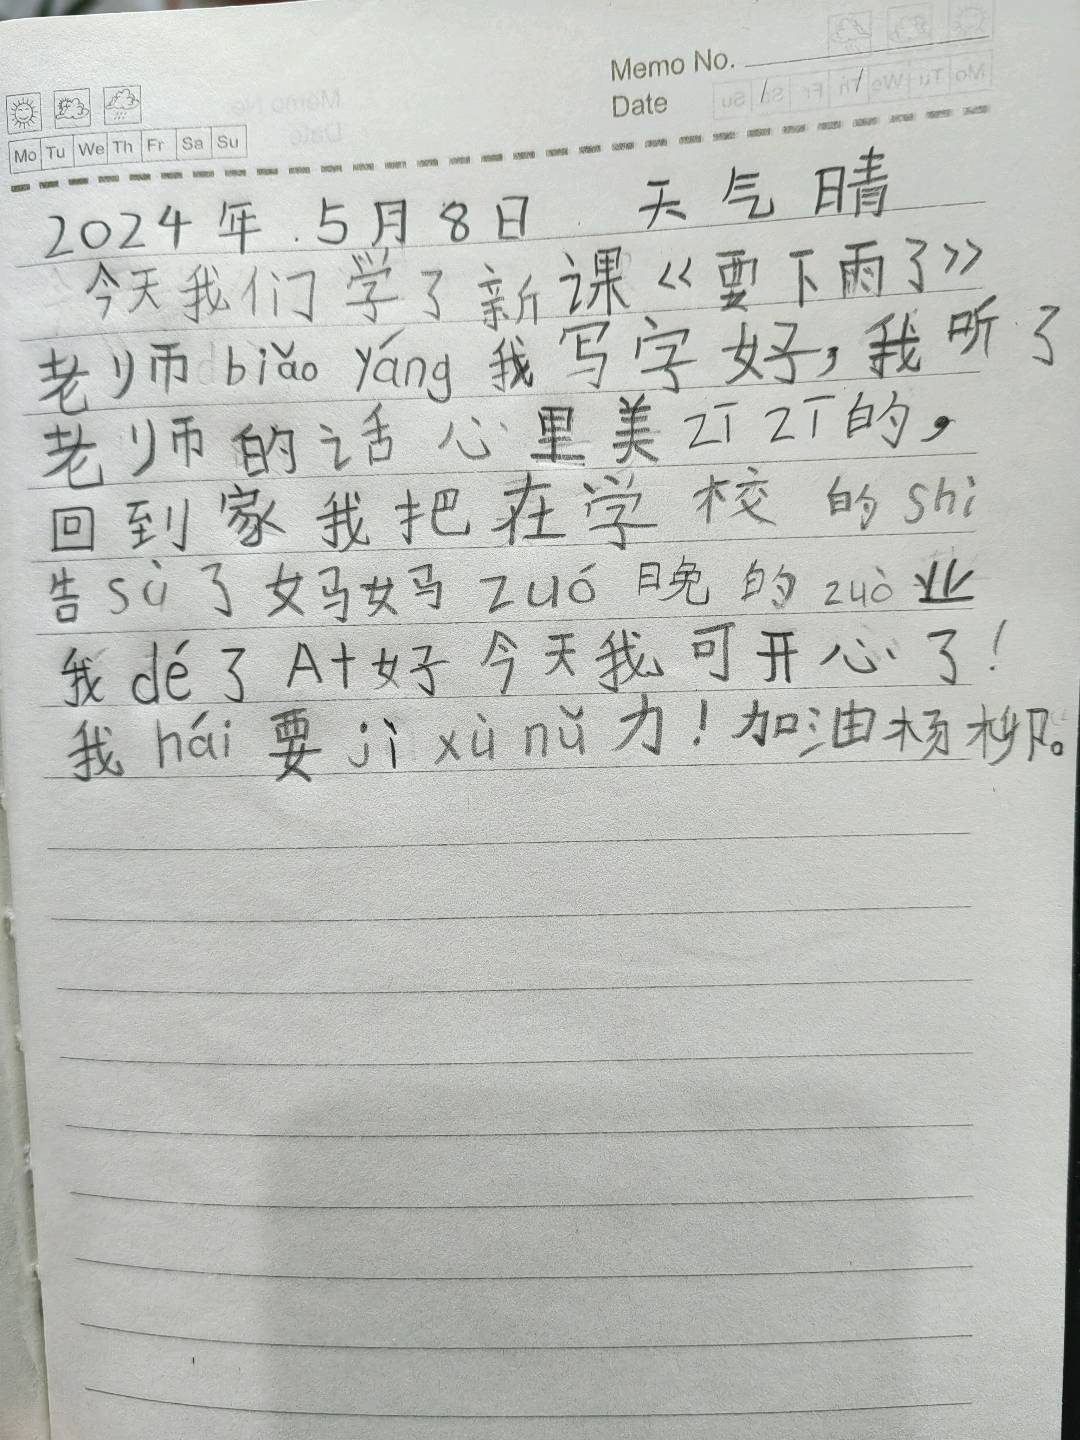 Memo No.
Date / /
Mo Tu We Th Fr Sa Su
2024年.5月8日 天气晴
今天我们学了新课《要下雨了》
老师biǎo yáng我写字好,我听了
老师的话心里美ZIZI的,
回到家我把在学校的shi
告sù了妈妈zuó晚的zuò业
我dé了A+好今天我可开心了!
我hái要jì xù nǔ力!加油杨柳。